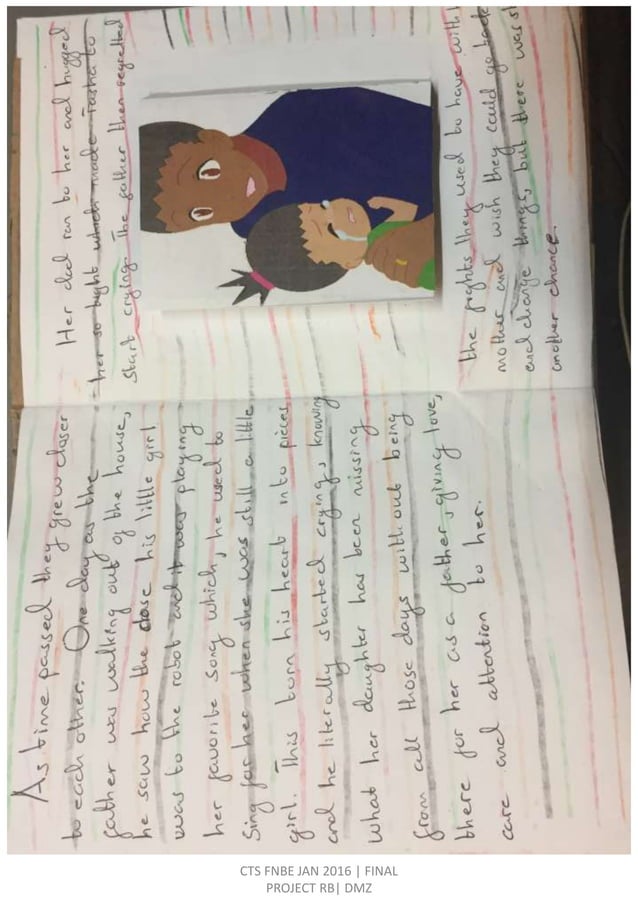 As time passed they grew closer
to each other. One day as the
father was walking out of the house,
he saw how the close his little girl
was to the robot and it was playing
her favorite song which, he used to
Sing for her when she was still a little
girl. This torn his heart into pieces
and he literally started crying, knowing
what her daughter has been missing
from all those days without being
there for her as a father, giving love,
care and attention to her.
Her dad ran to her and hugged
her so tight which made Tasha to
start crying. The father then regretted
the fights they used to have with
mother and wish they could go back
and change things, but there was
another chance.
CTS FNBE JAN 2016 | FINAL
PROJECT RB| DMZ